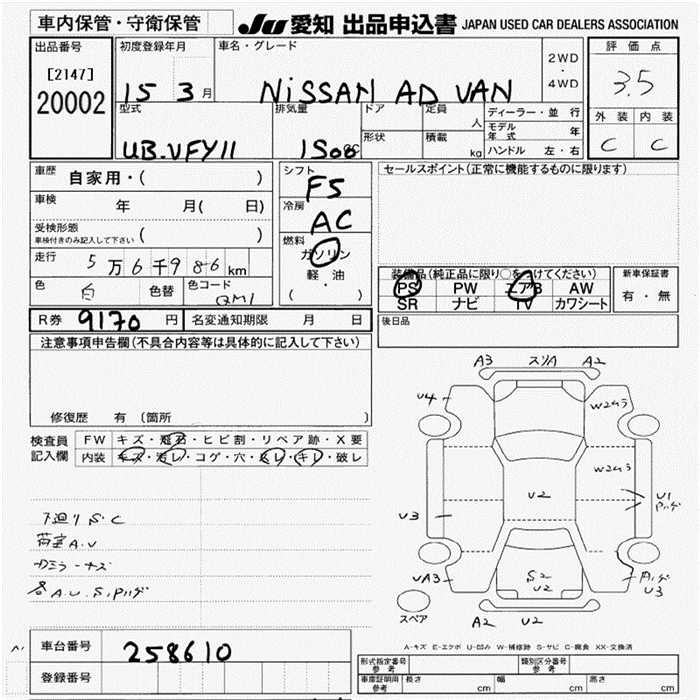 車内保管・守衛保管
JU 愛知 出品申込書 JAPAN USED CAR DEALERS ASSOCIATION
出品番号
[2147]
20002
初度登録年月
15 3月
車名・グレード
NiSSAN AD VAN
2WD
・
4WD
評価点
3.5
外装 内装
C C
型式
UB-VFY11
排気量
1500cc
ドア
形状
定員
人
積載
kg
ディーラー・並行
モデル年式 年
ハンドル 左・右
車歴
自家用・( )
車検
年 月( 日)
受検形態
車検付きのみ記入して下さい ( )
走行
5万6千986km
色
白
色替
色コード
QM1
シフト
F5
冷房
AC
燃料
ガソリン
軽油
( ・ )
セールスポイント(正常に機能するものに限ります)
装備品(純正品に限り○をつけてください)
PS PW エアB AW
SR ナビ TV カワシート
新車保証書
有・無
R券 9170 円
名変通知期限 月 日
後日品
注意事項申告欄(不具合内容等は具体的に記入して下さい)
修復歴 有 (箇所 )
検査員
記入欄
FW キズ・飛石・ヒビ割・リペア跡・X要
内装 キズ・汚レ・コゲ・穴・スレ・キレ・破レ
下廻りS.C
荷室A.U
カミラーキズ
各A.U.S.ハゲ
A3 スリA A2
U4
W2ムラ
W2ムラ
U2
U1
ハゲ
U3
UA3
S2
U2
U3
スペア
A2 U2
A-キズ E-エクボ U-凹み W-補修跡 S-サビ C-腐食 XX-交換済
車台番号
258610
登録番号
型式指定番号
参考
類別区分番号
参考
車庫証明用
参考
長さ cm
幅 cm
高さ cm